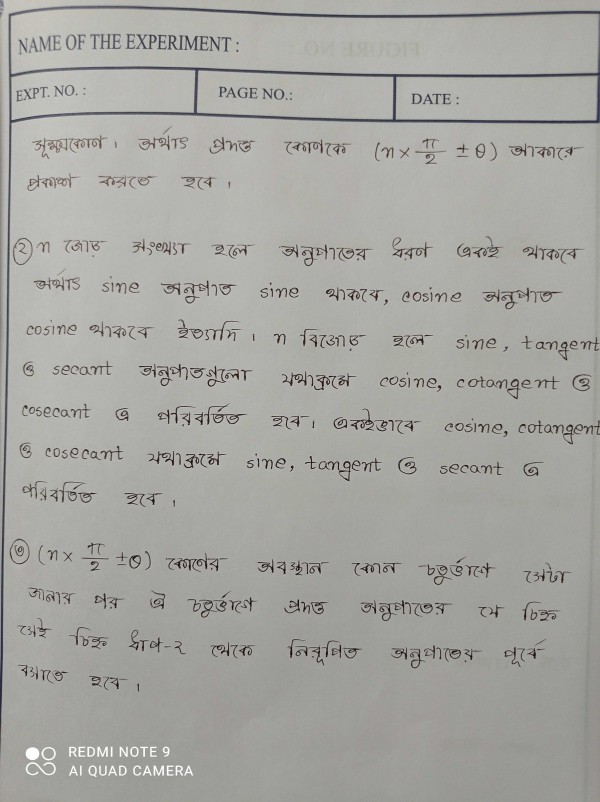 NAME OF THE EXPERIMENT :
EXPT. NO. :
PAGE NO.:
DATE :
সূক্ষ্মকোণ। অর্থাৎ প্রদত্ত কোণকে (n × π/2 ± θ) আকারে
প্রকাশ করতে হবে।
(২) n জোড় সংখ্যা হলে অনুপাতের ধরণ একই থাকবে
অর্থাৎ sine অনুপাত sine থাকবে, cosine অনুপাত
cosine থাকবে ইত্যাদি। n বিজোড় হলে sine, tangent
ও secant অনুপাতগুলো যথাক্রমে cosine, cotangent ও
cosecant এ পরিবর্তিত হবে। একইভাবে cosine, cotangent
ও cosecant যথাক্রমে sine, tangent ও secant এ
পরিবর্তিত হবে।
(৩) (n × π/2 ± θ) কোণের অবস্থান কোন চতুর্ভাগে সেটা
জানার পর ঐ চতুর্ভাগে প্রদত্ত অনুপাতের যে চিহ্ন
সেই চিহ্ন ধাপ-২ থেকে নিরূপিত অনুপাতের পূর্বে
বসাতে হবে।
REDMI NOTE 9
AI QUAD CAMERA